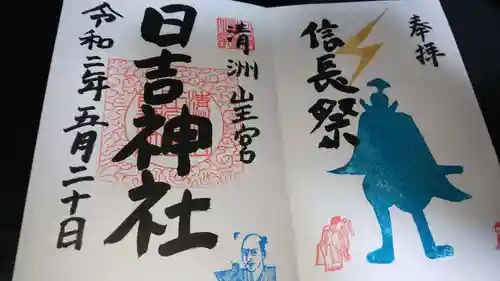 奉拝
信長祭
清洲山王宮
日吉神社
令和二年五月二十日